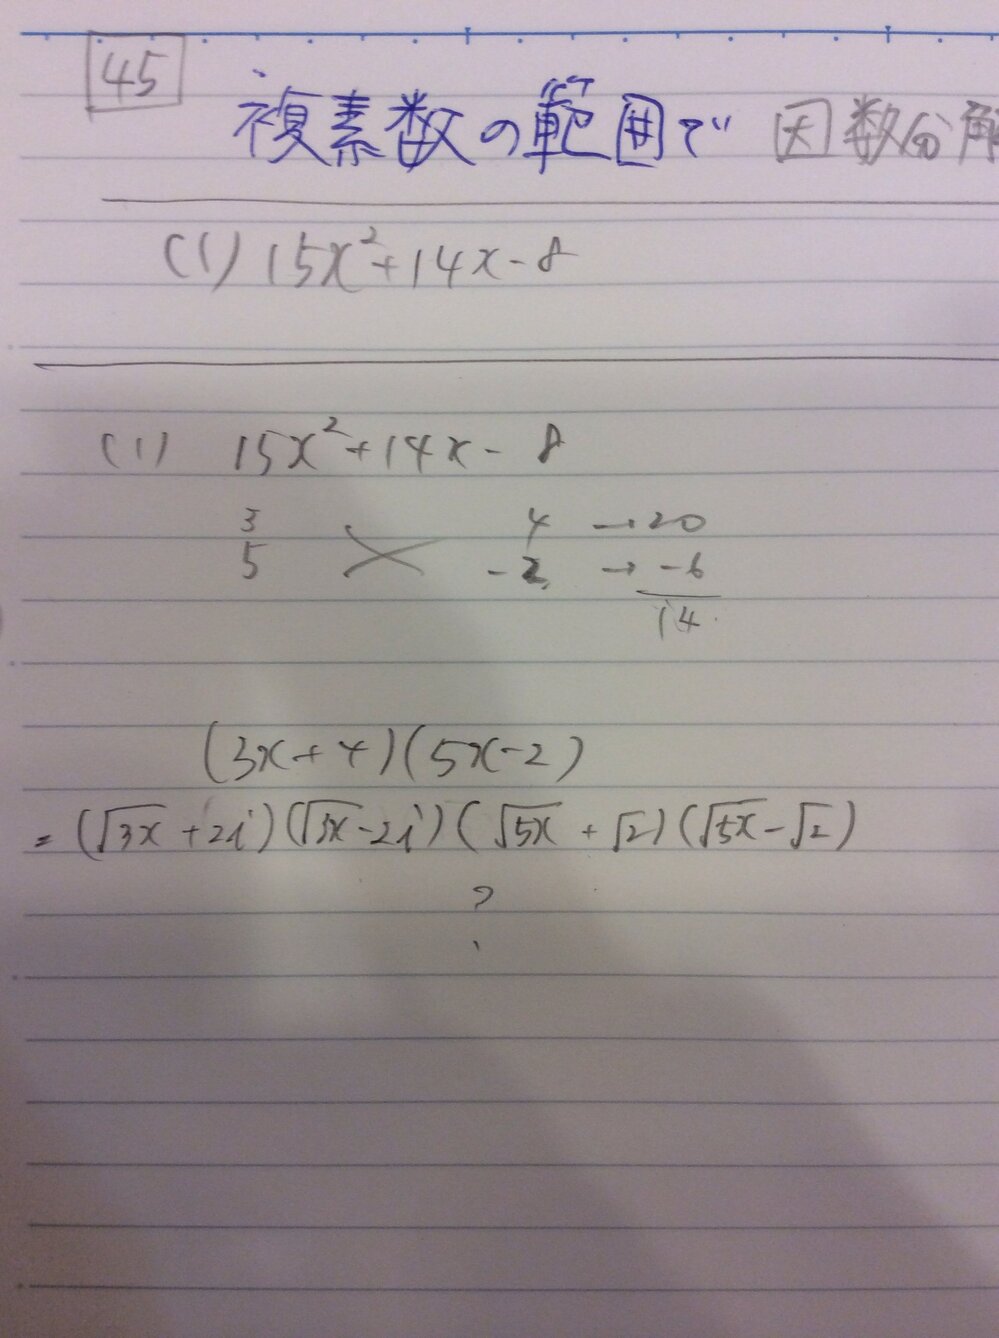 45
複素数の範囲で 因数分解
(1) 15x²+14x-8
(1) 15x²+14x-8
3 4 →20
5 -2 → -6
14
(3x+4)(5x-2)
= (√3x +2i)(√3x-2i)(√5x +√2)(√5x-√2)
?